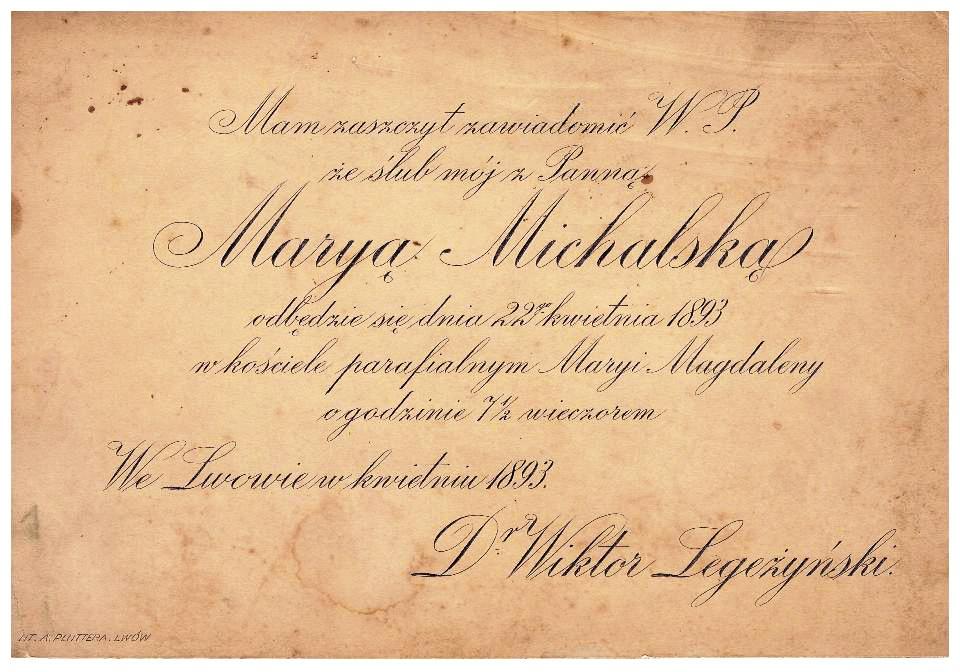 Mam zaszczyt zawiadomić W. P.
że ślub mój z Panną
Maryą Michalską
odbędzie się dnia 22go kwietnia 1893
w kościele parafialnym Maryi Magdaleny
o godzinie 7½ wieczorem
We Lwowie w kwietniu 1893.
Dr. Wiktor Legeżyński.
LIT. A. PRUITTERA. LWÓW